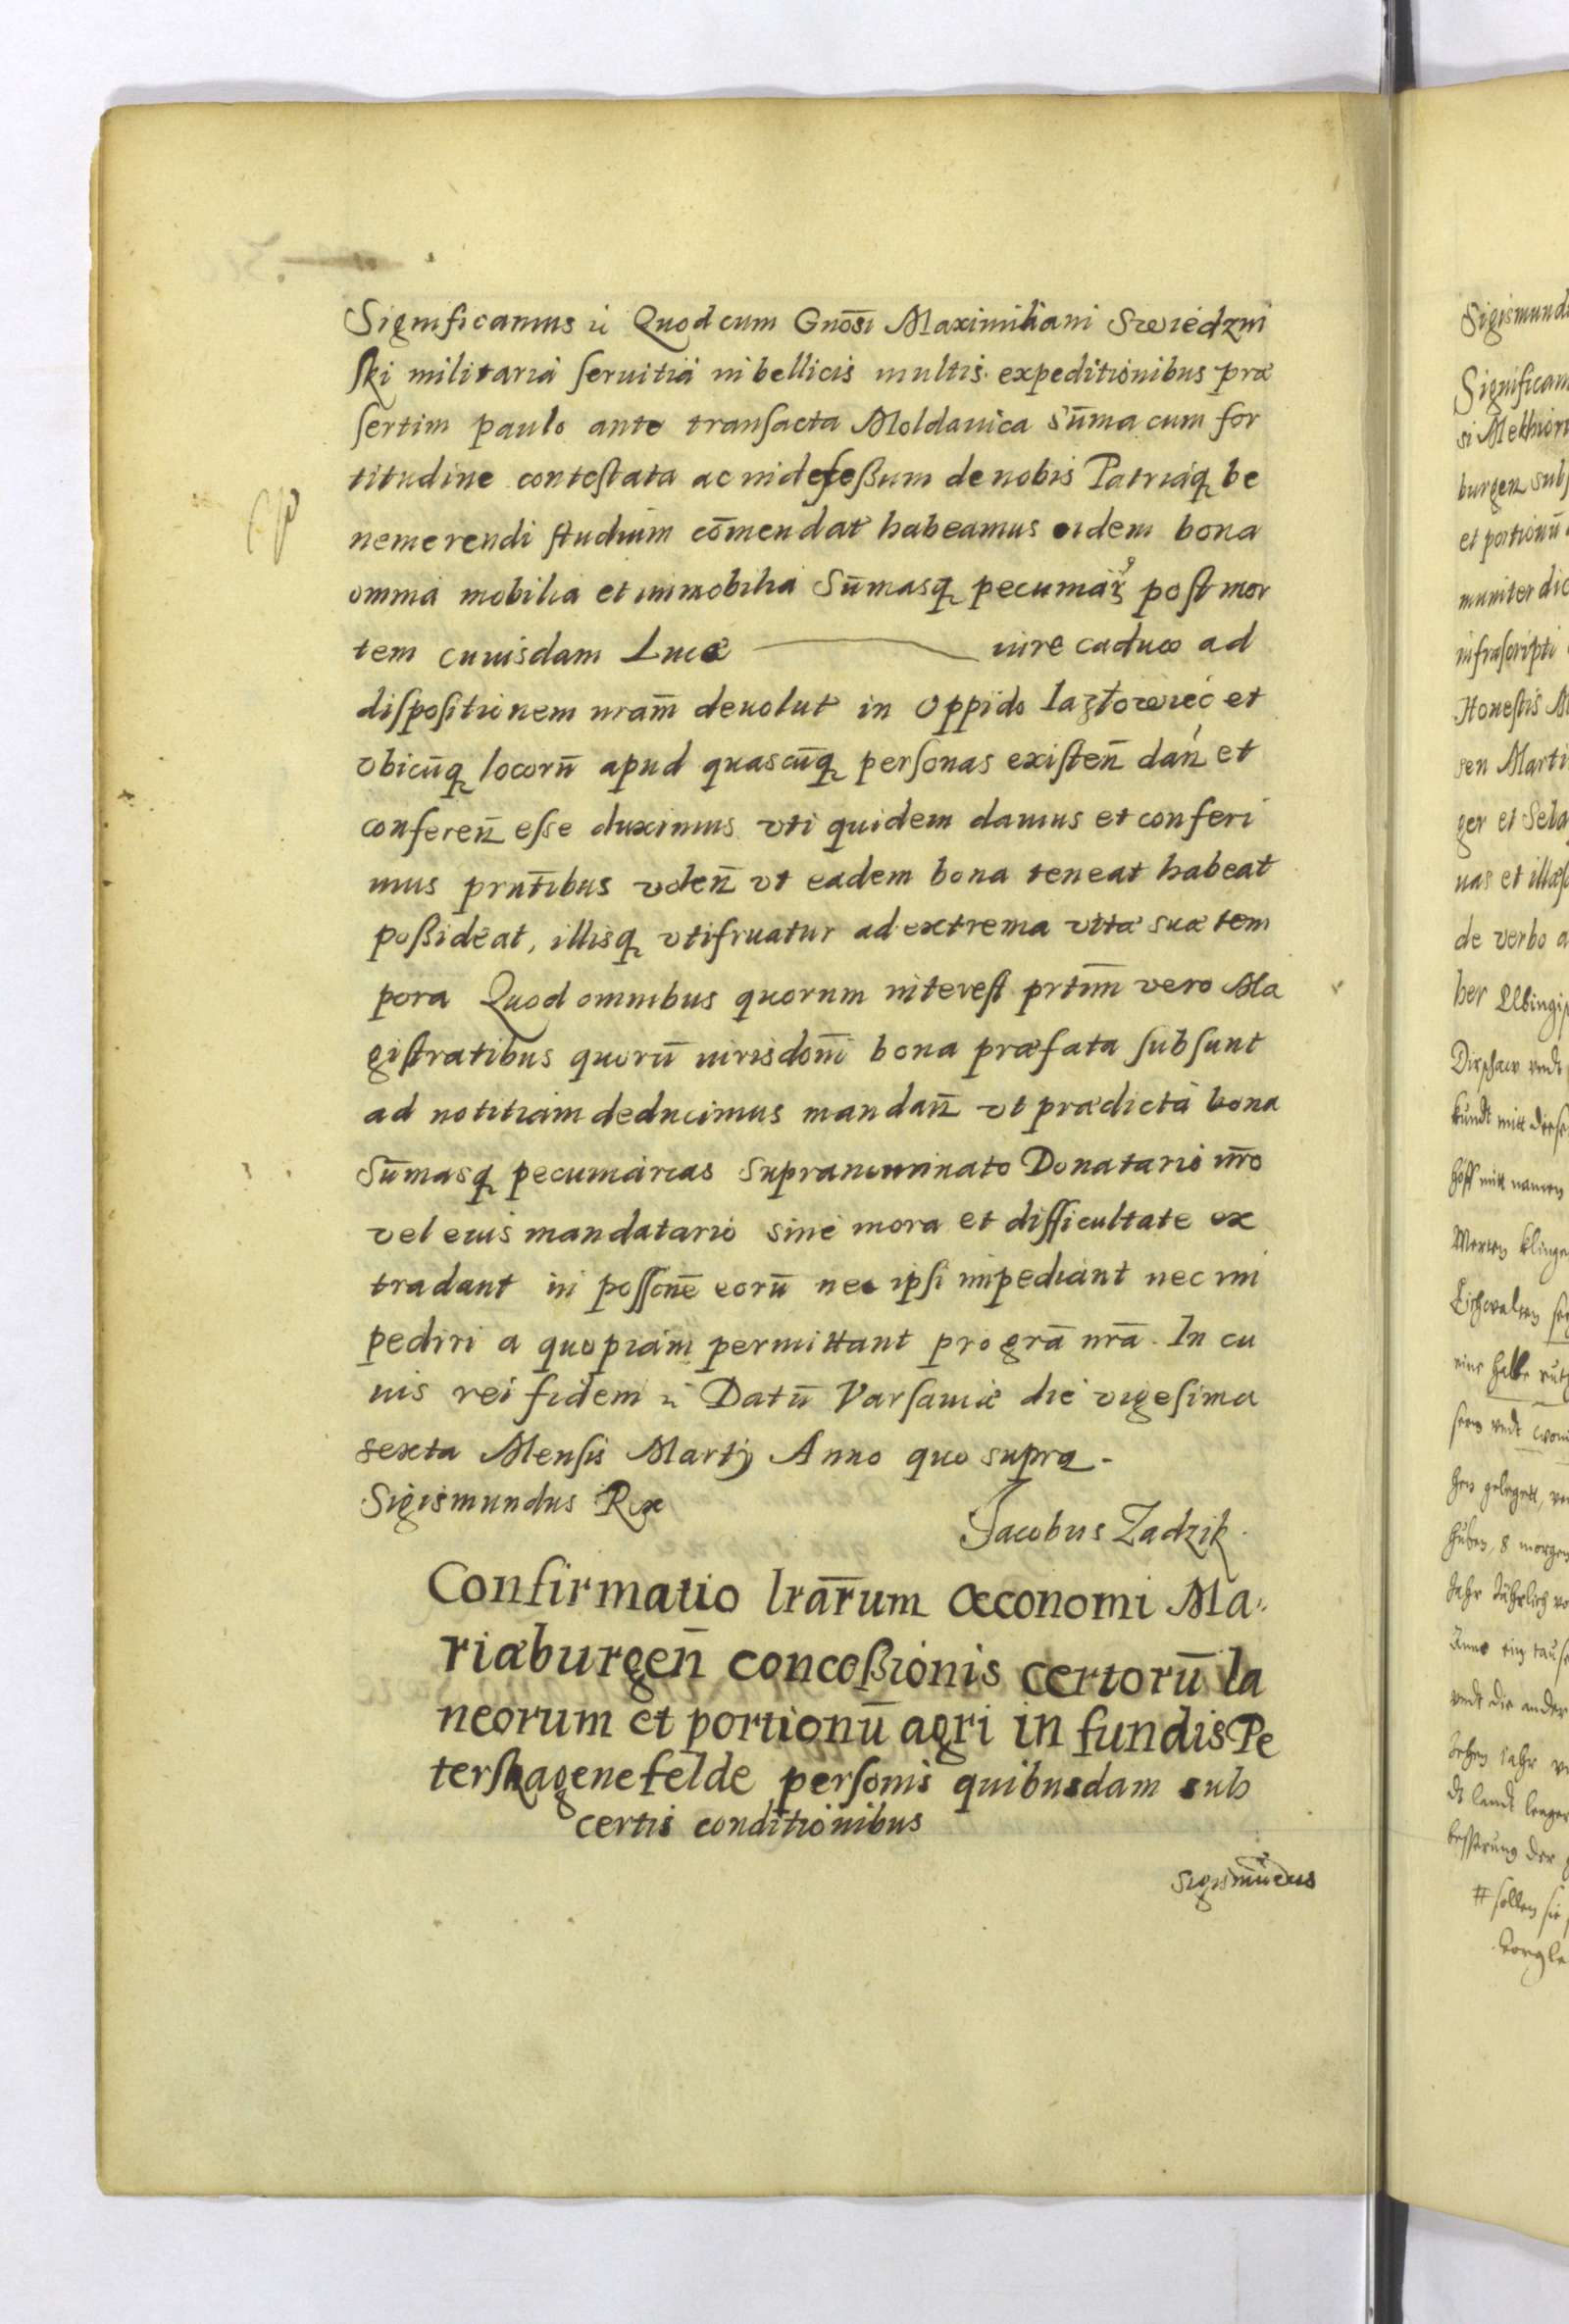 Significamus ii Quod cum Gnōsi Maximiliani Swiedzni
ſki militaria ſeruitia in bellicis multis expeditionibus præ
ſertim paulo ante tranſacta Moldauica sūma cum for
titudine conteſtata ac indefeßum de nobis Patriaq be
nemerendi ſtudium cōmendat habeamus eidem bona
omnia mobilia et immobilia Sūmasq pecuniar poſt mor
tem cuiusdam Lucæ iure caduco ad
diſpoſitionem nram̄ deuolut in Oppido Iazłowiec et
vbicūq locorū apud quascūq perſonas exiſten̄ dan et
conferen̄ eſse duximus vti quidem damus et conferi
mus prntībus vt eadem bona teneat habeat
poßideat, illisq vtifruatur ad extrema vitæ suæ tem
pora Quod omnibus quorum intereſt prtim̄ vero Ma
giſtratibus quorū iurisdom̄i bona præfata ſubſunt
ad notitiam deducimus mandan̄ vt prædicta bona
Sūmasq pecuniarias supranominato Donatario nr̄o
vel eius mandatario sine mora et difficultate ex
tradant in poſſonē eorū nec ipſi impediant nec im
pediri a quopiam permittant pro grā nrā. In cu
ius rei fidem ii Datū Varſauiæ die vigeſima
sexta Menſis Martij Anno quo supra.
Sigismundus Rex
Jacobus Zadzik.
Confirmatio lrār̄um œconomi Ma
riæburgen̄ conceßionis certorū la
neorum et portionū agri in fundis Pe
terſhagenefelde perſonis quibusdam sub
certis conditionibus
Sigismūdus
Sigismund
Significam
si Melhior
burgen sub
et portionū
muniter dic
infraſcripti
Honeſtis M
sen Marti
ger et Seba
uas et illæſ
de verbo a
her Elbing